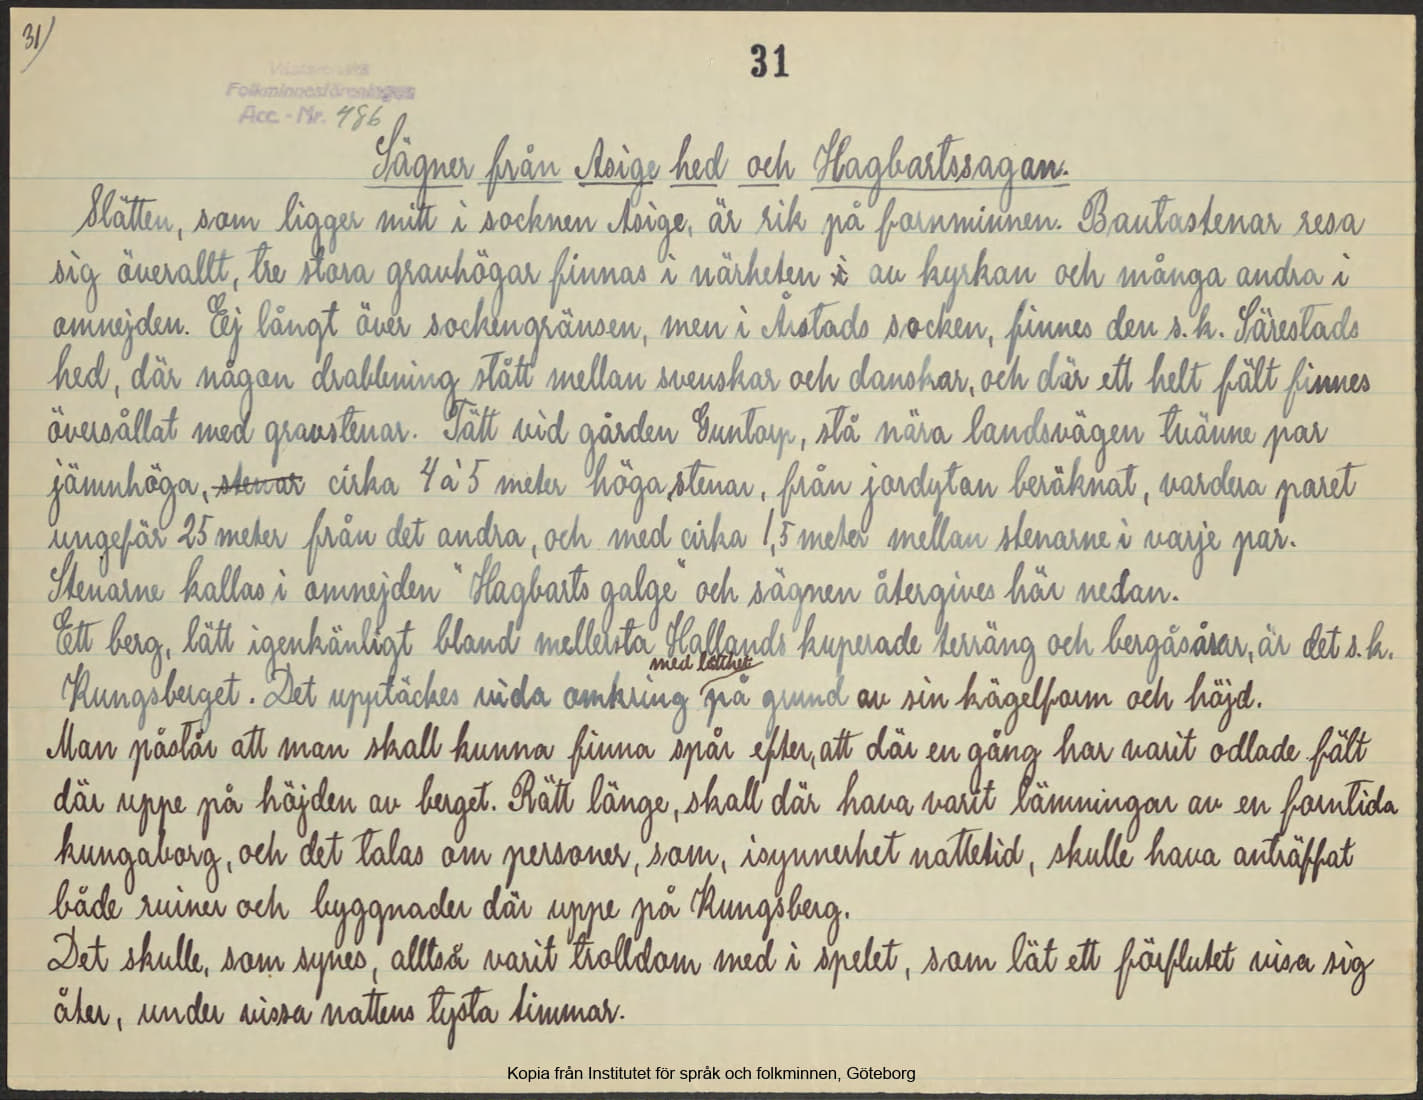 31)
31
Västsvenska
Folkminnesföreningen
Acc.-Nr. 486
Sägner från Asige hed och Hagbartssagan.
Slätten, som ligger mitt i socknen Asige, är rik på fornminnen. Bautastenar resa
sig överallt, tre stora gravhögar finnas i närheten i av kyrkan och många andra i
omnejden. Ej långt över sockengränsen, men i Årstads socken, finnes den s.k. Särestads
hed, där någon drabbning stått mellan svenskar och danskar, och där ett helt fält finnes
översållat med gravstenar. Tätt vid gården Guntorp, stå nära landsvägen tvänne par
jämnhöga, stenar cirka 4 à 5 meter höga, stenar, från jordytan beräknat, vardera paret
ungefär 25 meter från det andra, och med cirka 1,5 meter mellan stenarne i varje par.
Stenarne kallas i omnejden "Hagbarts galge" och sägnen återgives här nedan.
Ett berg, lätt igenkänligt bland mellersta Hallands kuperade terräng och bergåsårar, är det s.k.
med lätthet
Kungsberget. Det upptäckes vida omkring på grund av sin kägelform och höjd.
Man påstår att man skall kunna finna spår efter, att där en gång har varit odlade fält
där uppe på höjden av berget. Rätt länge, skall där hava varit lämningar av en forntida
kungaborg, och det talas om personer, som, isynnerhet nattetid, skulle hava anträffat
både ruiner och byggnader där uppe på Kungsberg.
Det skulle, som synes, alltså varit trolldom med i spelet, som lät ett förflutet visa sig
åter, under vissa nattens tysta timmar.
Kopia från Institutet för språk och folkminnen, Göteborg